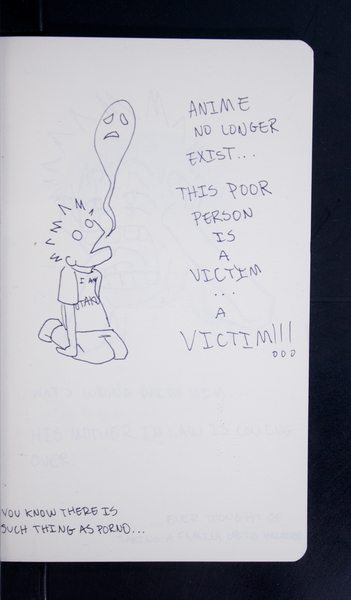 ANIME
NO LONGER
EXIST...
THIS POOR
PERSON
IS
A
VICTIM
...
A
VICTIM!!!
I AM
OTAKU
YOU KNOW THERE IS
SUCH THING AS PORNO...